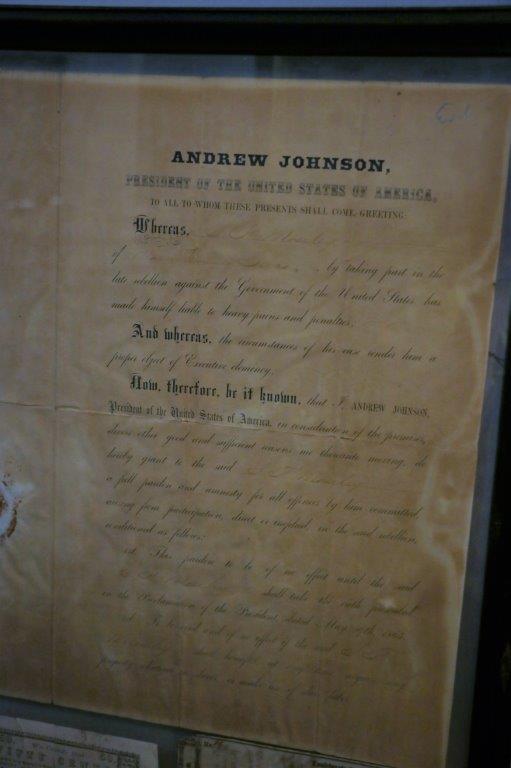 ANDREW JOHNSON,
PRESIDENT OF THE UNITED STATES OF AMERICA,
TO ALL TO WHOM THESE PRESENTS SHALL COME, GREETING
Whereas,
of , by taking part in the
late rebellion against the Government of the United States has
made himself liable to heavy pains and penalties;
And whereas, the circumstances of his case render him a
proper object of Executive clemency,
Now, therefore, be it known, that I, ANDREW JOHNSON,
President of the United States of America, in consideration of the premises,
divers other good and sufficient reasons me thereunto moving, do
hereby grant to the said
a full pardon and amnesty for all offences by him committed
arising from participation, direct or implied, in the said rebellion,
conditioned as follows:
1st. This pardon to be of no effect until the said
shall take the oath prescribed
in the Proclamation of the President, dated May 29th, 1865.
To be void and of no effect if the said
at any time acquire any
property in slaves, or make use of slave labor.
FIFTY CEN